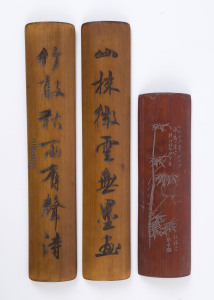 山抹微雲無墨畫
竹敲秋雨有聲詩